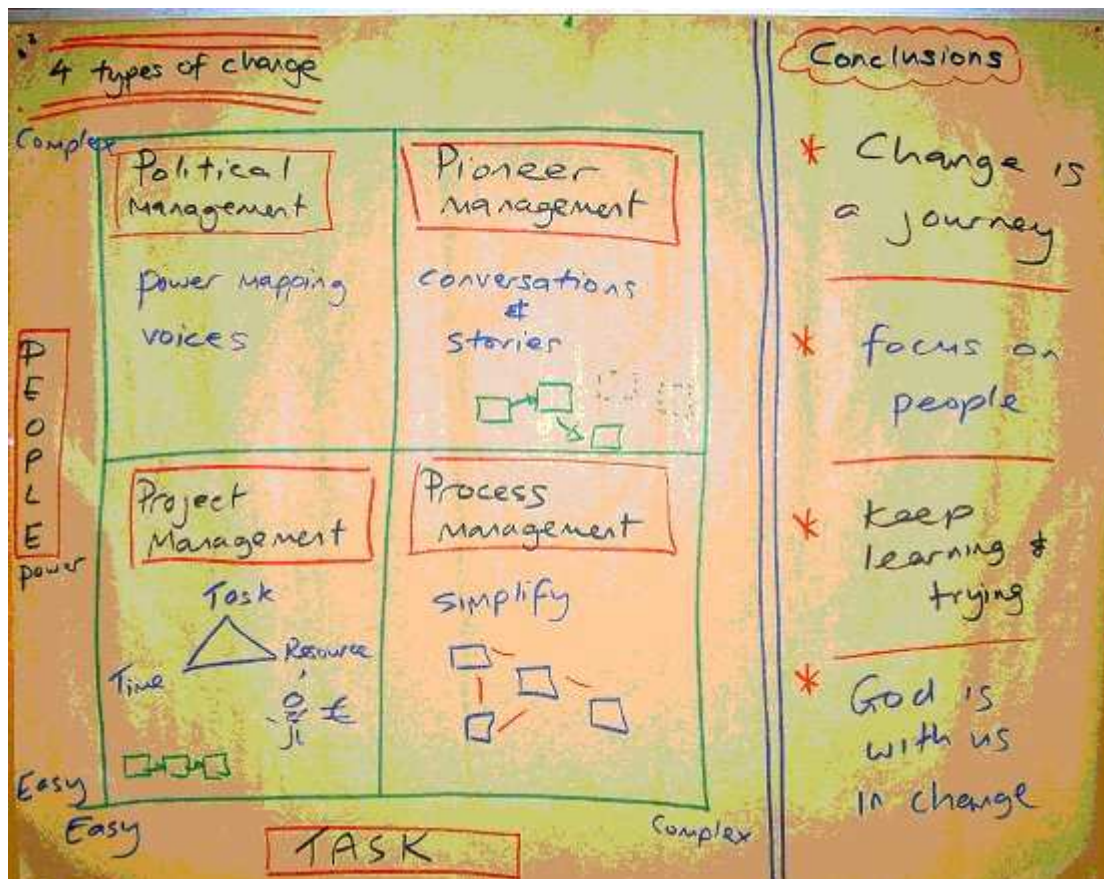 4 types of change
Complex
Political
Management
power mapping
voices
Pioneer
management
conversations
&
stories
PEOPLE
power
Project
Management
Task
Time
Resource
£
Process
Management
simplify
Easy
Easy
Complex
TASK
Conclusions
* Change is
a journey
* focus on
people
* keep
learning &
trying
* God is
with us
in change